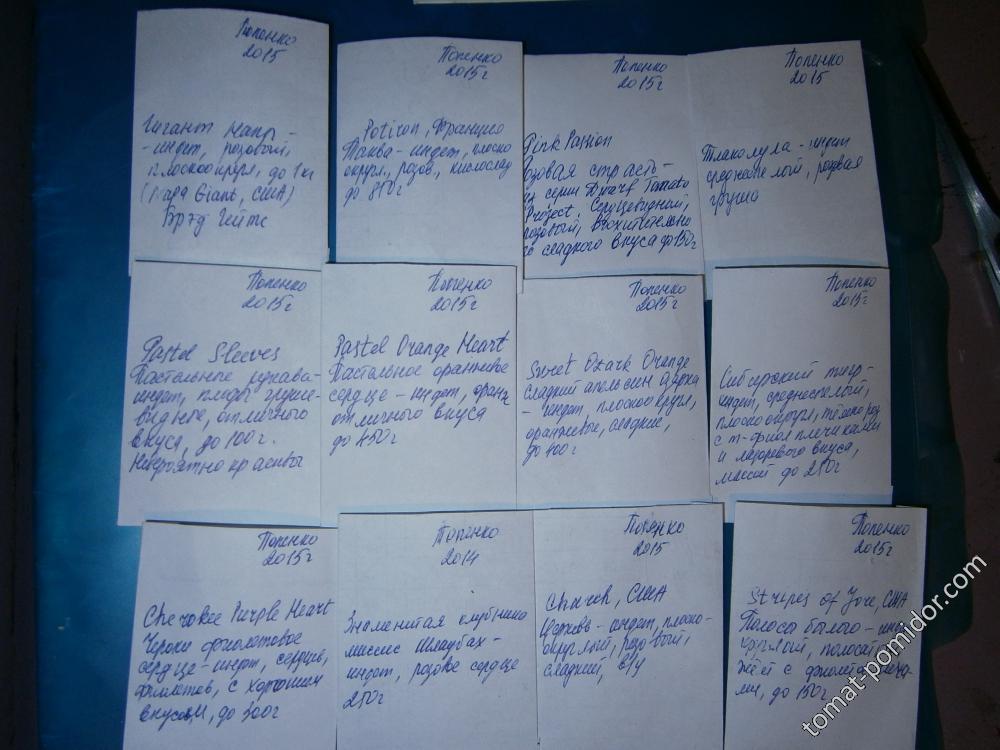 Попенко
2015
Гигант Папы -
- индет, розовый,
плоскоокругл, до 1кг
(Papa Giant, США)
Брэд Гейтс
Попенко
2015г
Potiron, Франция
Тыква - индет, плоско
округл., розов., кислослад
до 810г
Попенко
2015г
Pink Passion
Розовая страсть -
из серии Dwarf Tomato
Project. Сердцевидный,
розовый, восхитительно
го сладкого вкуса до 150г
Попенко
2015
Тлаколула - индет
среднеспелый, розовая
груша
Попенко
2015г
Pastel Sleeves
Пастельные рукава -
индет, плоды груше-
видные, отличного
вкуса, до 100г.
Невероятно красивы
Попенко
2015г
Pastel Orange Heart
Пастельное оранжевое
сердце - индет, оранж
отличного вкуса
до 450г
Попенко
2015г
Sweet Ozark Orange
сладкий апельсин озарка
- индет, плоскоокругл,
оранжевые, сладкие,
до 400г
Попенко
2015г
Сибирский тигр-
индет, среднеспелый,
плоскоокругл,
с т-фиол плечиками
и вкуса,
массой до 250г
Попенко
2015г
Cherokee Purple Heart
Чероки фиолетовое
сердце - индет, сердцев,
фиолетов, с хорошим
вкусом, до 300г
Попенко
2014
Знаменитая клубника
миссис Шлаубах -
индет, розовое сердце
250г
Попенко
2015
Church, США
Церковь - индет, плоско-
округлый, розовый,
сладкий, в/у
Попенко
2015г
Stripes of Yore, США
Полосы былого - инд
круглый, полосат
жёлт с фиолет
ми, до 150г
tomat-pomidor.com